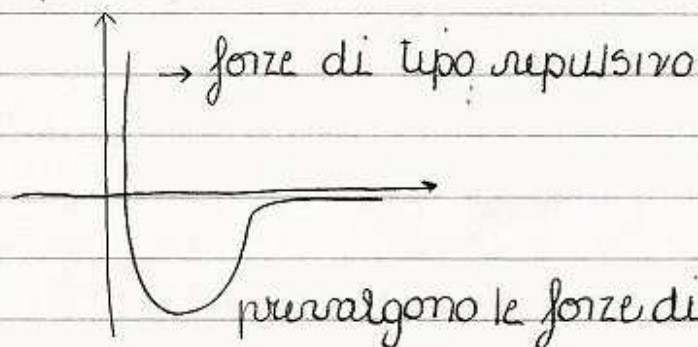 → forze di tipo repulsivo
prevalgono le forze di